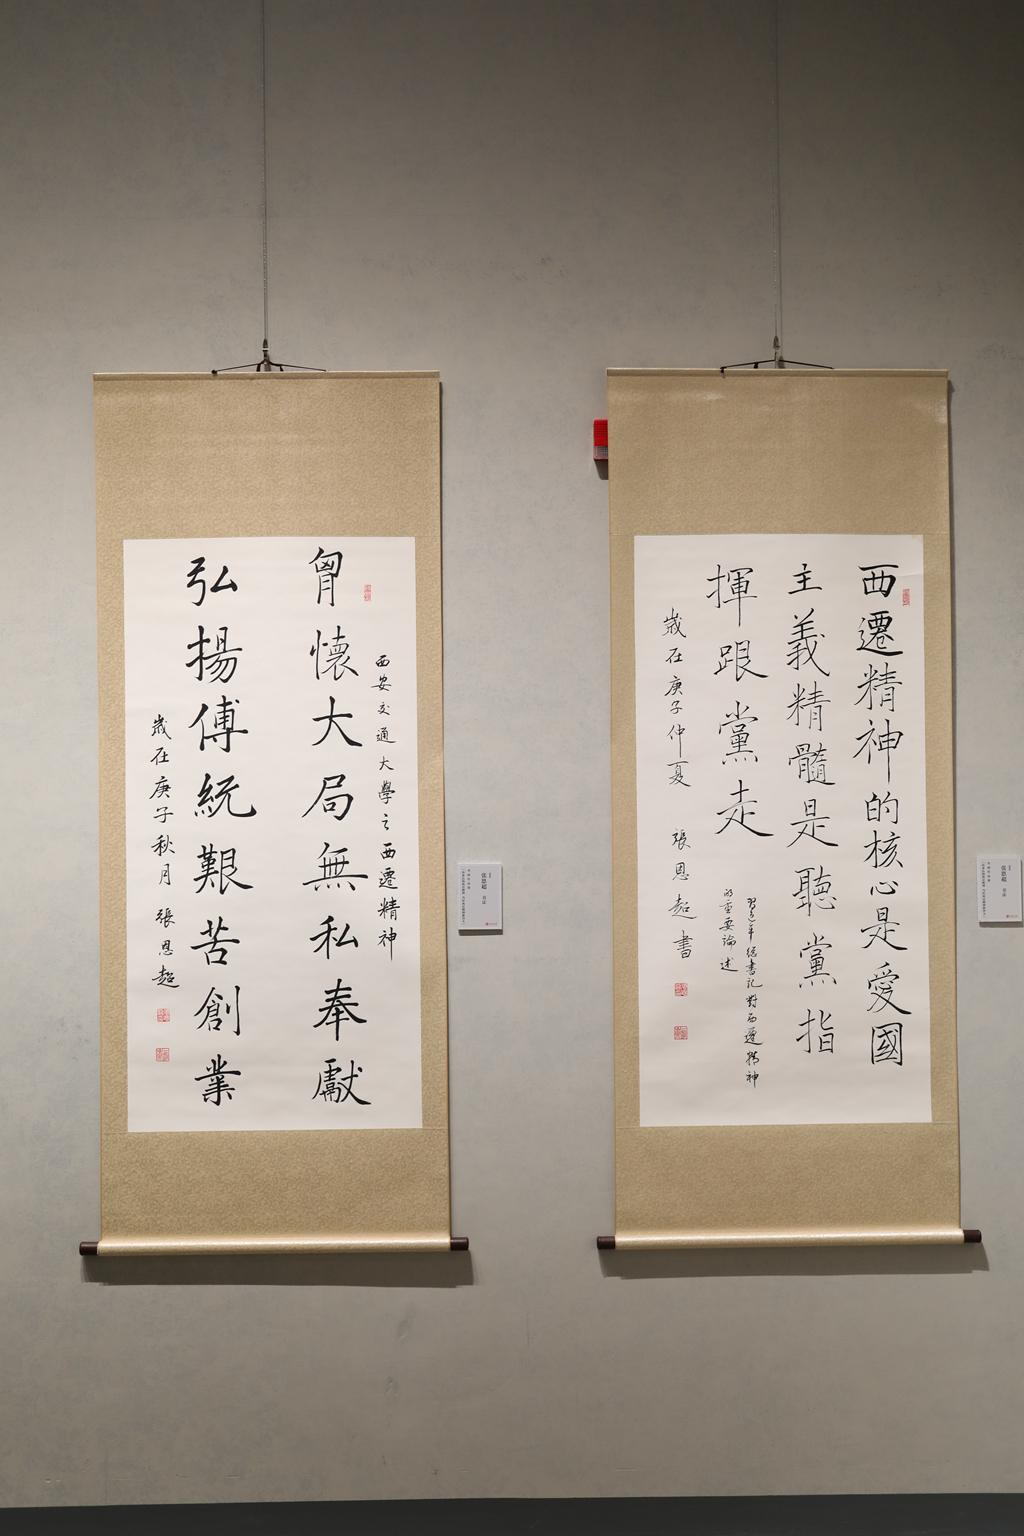 西遷精神的核心是愛國
主義精髓是聽黨指
揮跟黨走
習近平總書記對西遷精神
的重要論述
歲在庚子仲夏 張恩超書
胷懷大局無私奉獻
西安交通大學之西遷精神
弘揚傅統艱苦創業
歲在庚子秋月 張恩超
张恩超 书法
张恩超 书法